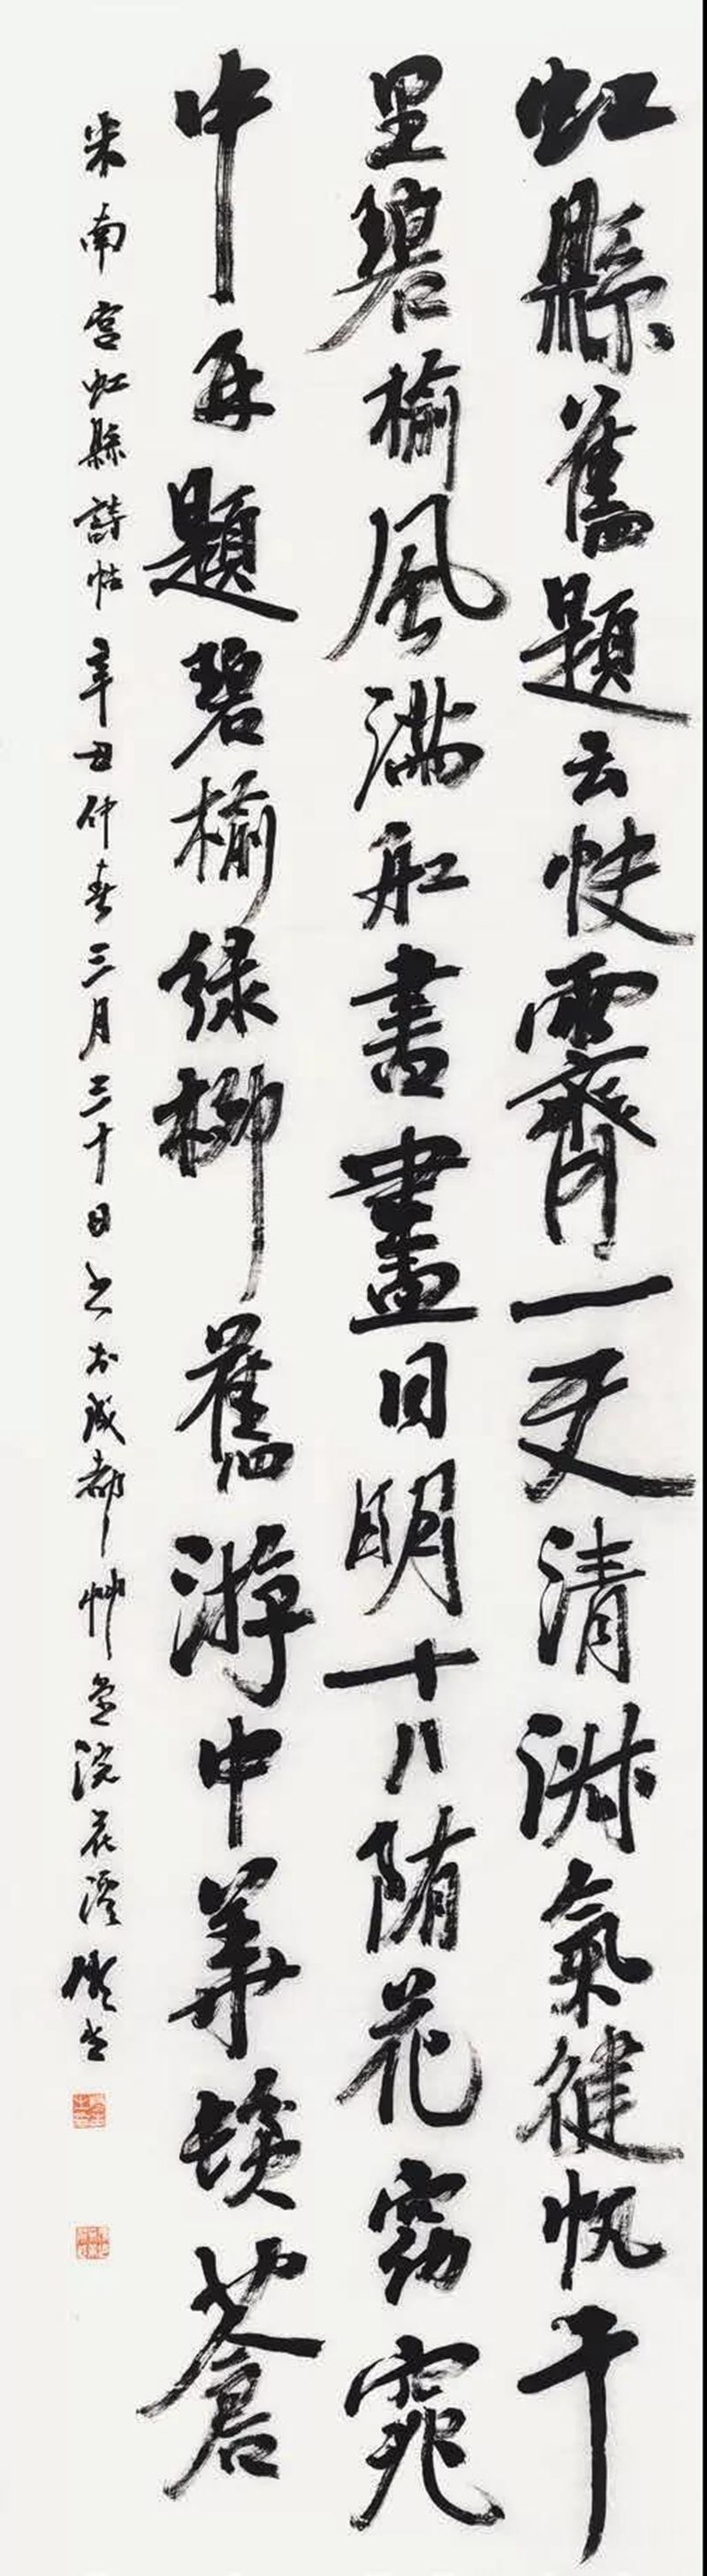 虹縣舊題云快霽一天清淑氣健帆千
里碧榆風滿舡書畫同明十八隨花窈窕
中再題碧榆綠柳舊游中華髮蒼
米南宮虹縣詩帖辛丑仲春三月三十日書於成都艸堂浣花溪